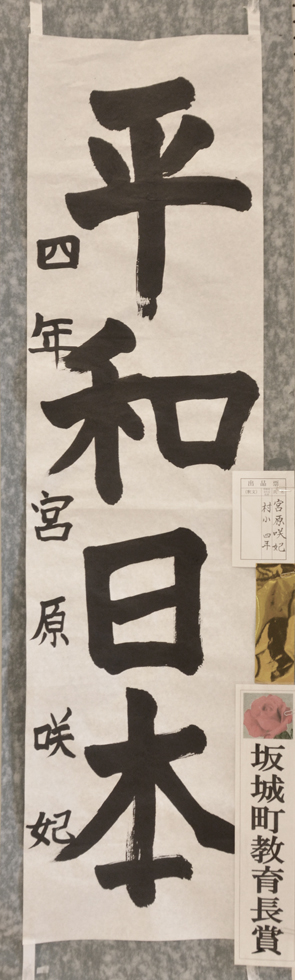 平和日本
四年 宮原咲妃
出品票
宮原咲妃
村小 四年
坂城町教育長賞